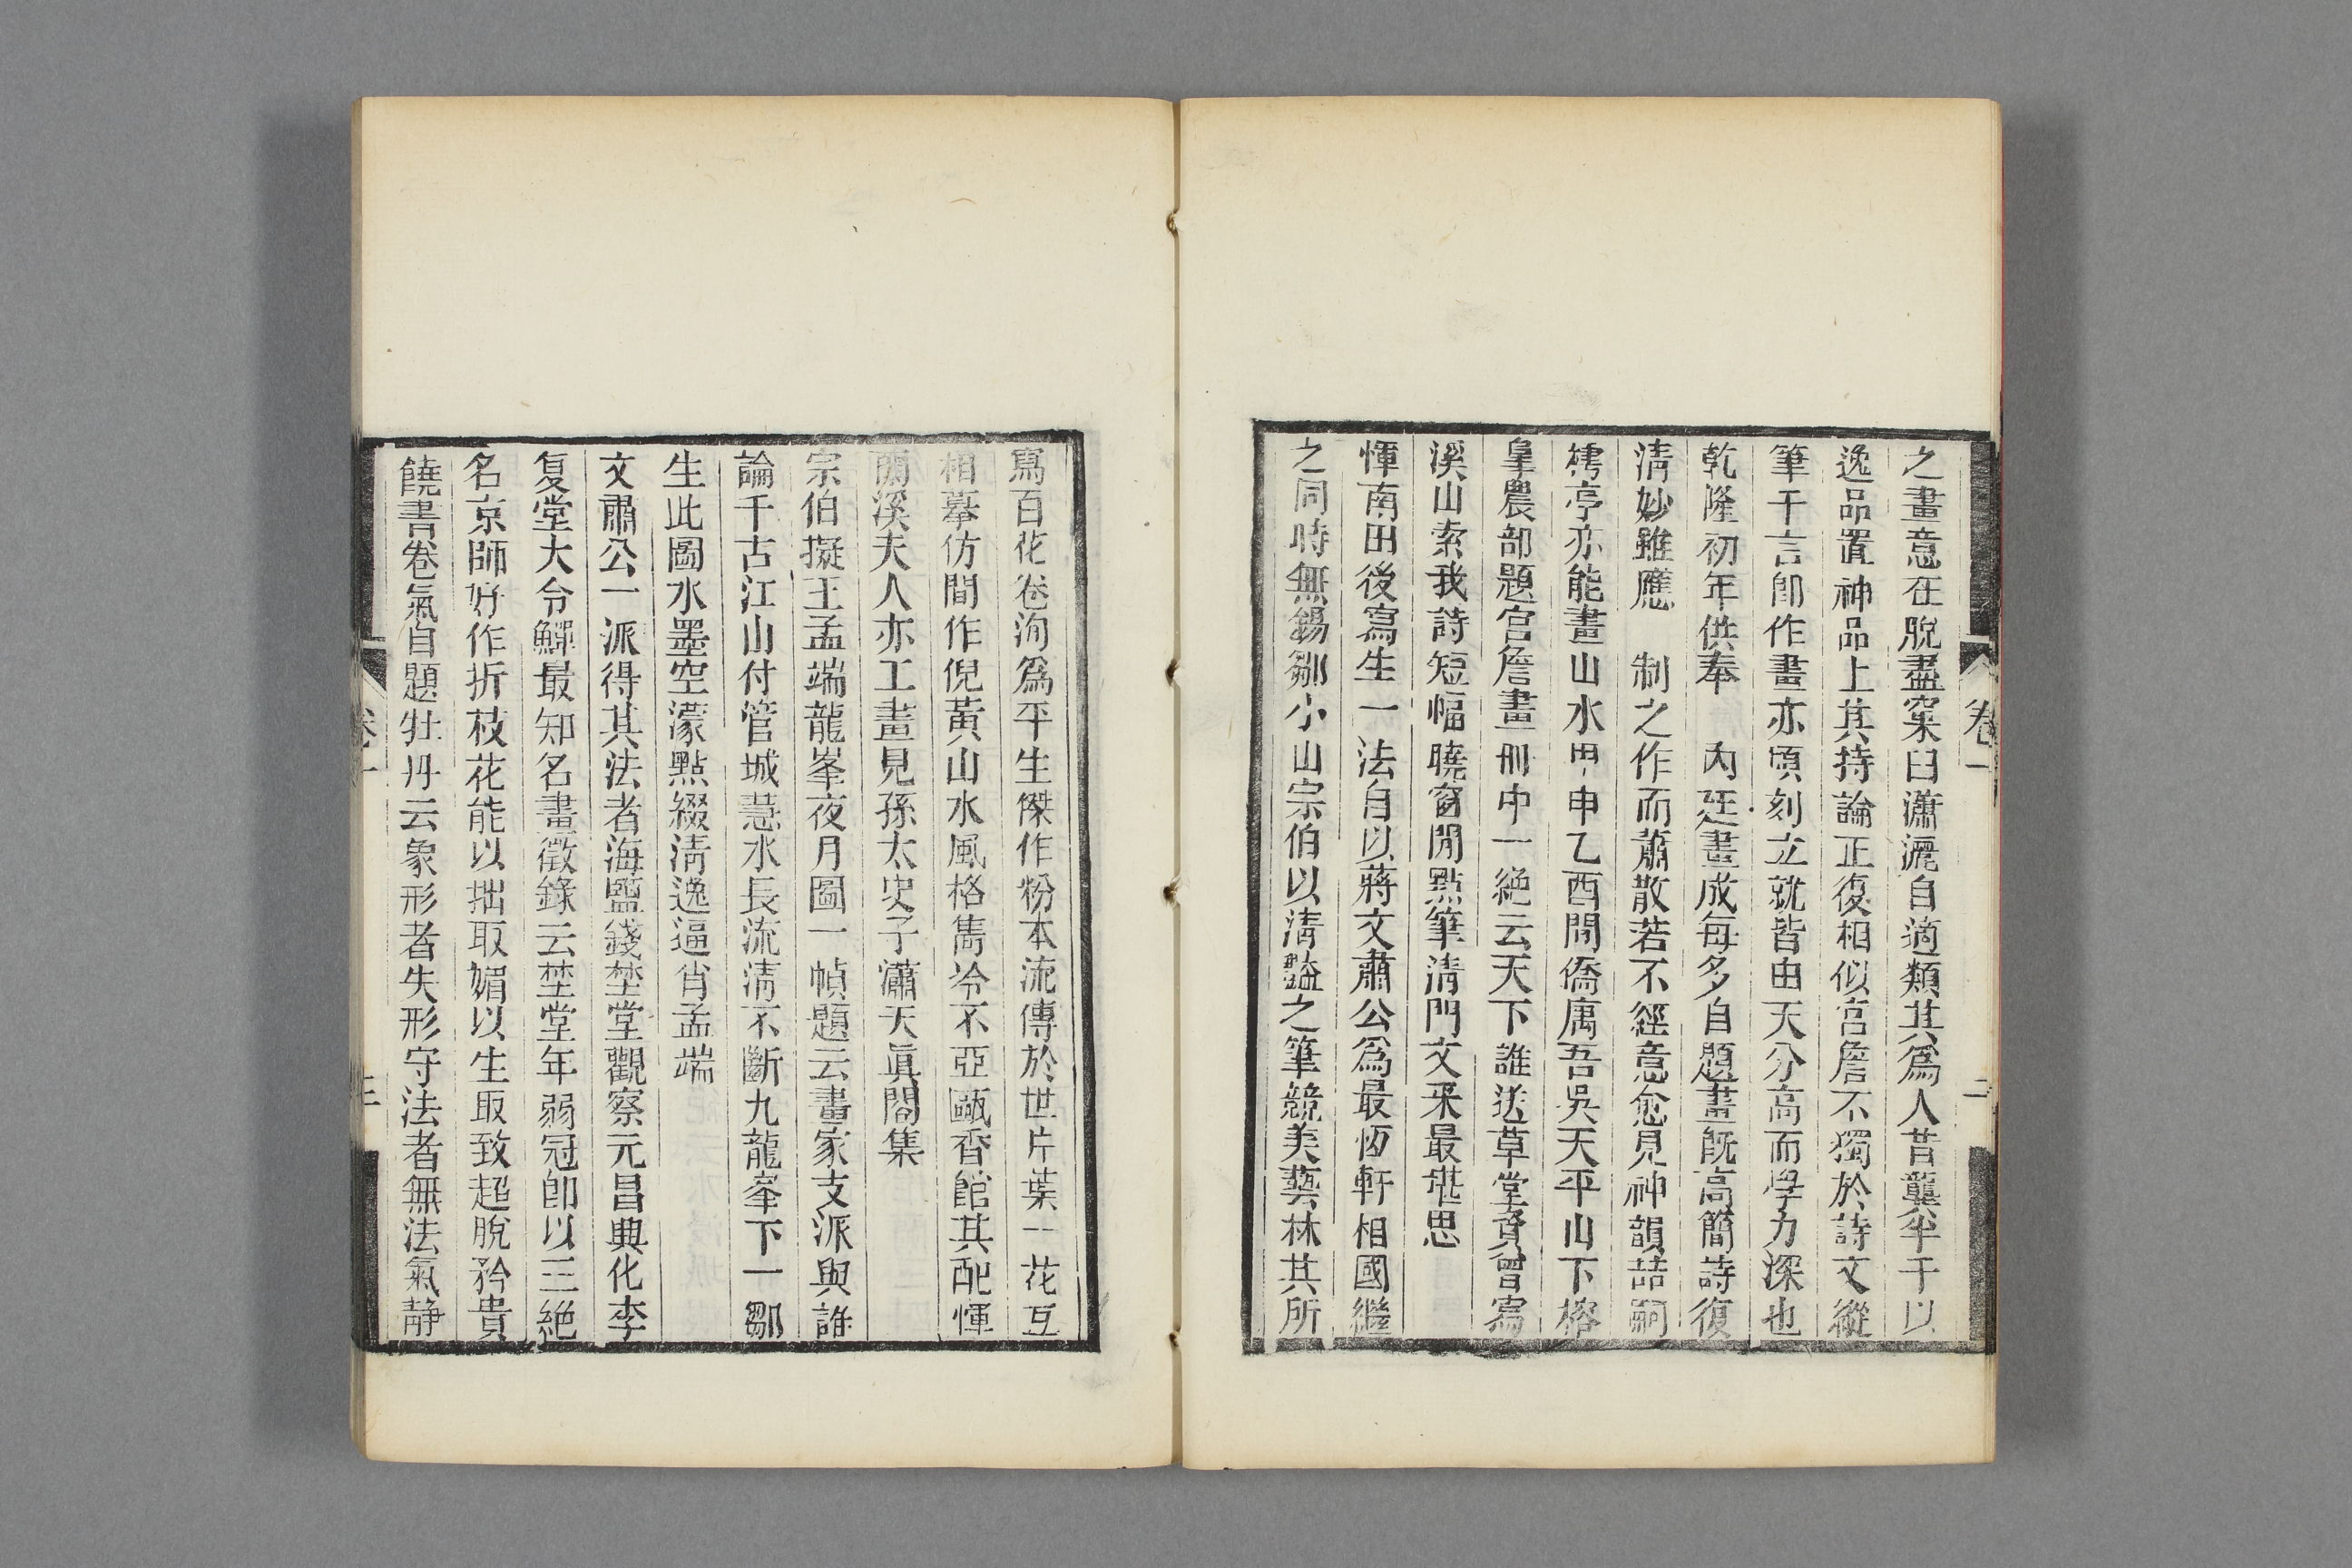 之畫意在脫盡窠臼瀟灑自適類其爲人昔龔半千以
逸品置神品上其持論正復相似宮詹不獨於詩文縱
筆千言卽作畫亦頃刻立就皆由天分高而學力深也
乾隆初年供奉　內廷畫成每多自題畫旣高簡詩復
淸妙雖應　制之作而蕭散若不經意愈見神韻喆嗣
樗亭亦能畫山水甲申乙酉間僑寓吾吳天平山下榕
皐農部題宮詹畫冊中一絕云天下誰送草堂資曾寫
溪山索我詩短幅曉窗閒點筆淸門文采最堪思
惲南田後寫生一法自以蔣文肅公爲最恆軒相國繼
之同時無錫鄒小山宗伯以淸豔之筆競美藝林其所
卷一
二
寫百花卷洵爲平生傑作粉本流傳於世片葉一花互
相摹仿間作倪黃山水風格雋冷不亞甌香館其配惲
蘭溪夫人亦工畫見孫太史子瀟天眞閣集
宗伯擬王孟端龍峯夜月圖一幀題云畫家支派與誰
論千古江山付管城慧水長流淸不斷九龍峯下一鄒
生此圖水墨空濛點綴淸逸逼肖孟端
文肅公一派得其法者海鹽錢埜堂觀察元昌興化李
复堂大令鱓最知名畫徵錄云埜堂年弱冠卽以三絕
名京師好作折枝花能以拙取媚以生取致超脫矜貴
饒書卷氣自題牡丹云象形者失形守法者無法氣靜
卷一
三